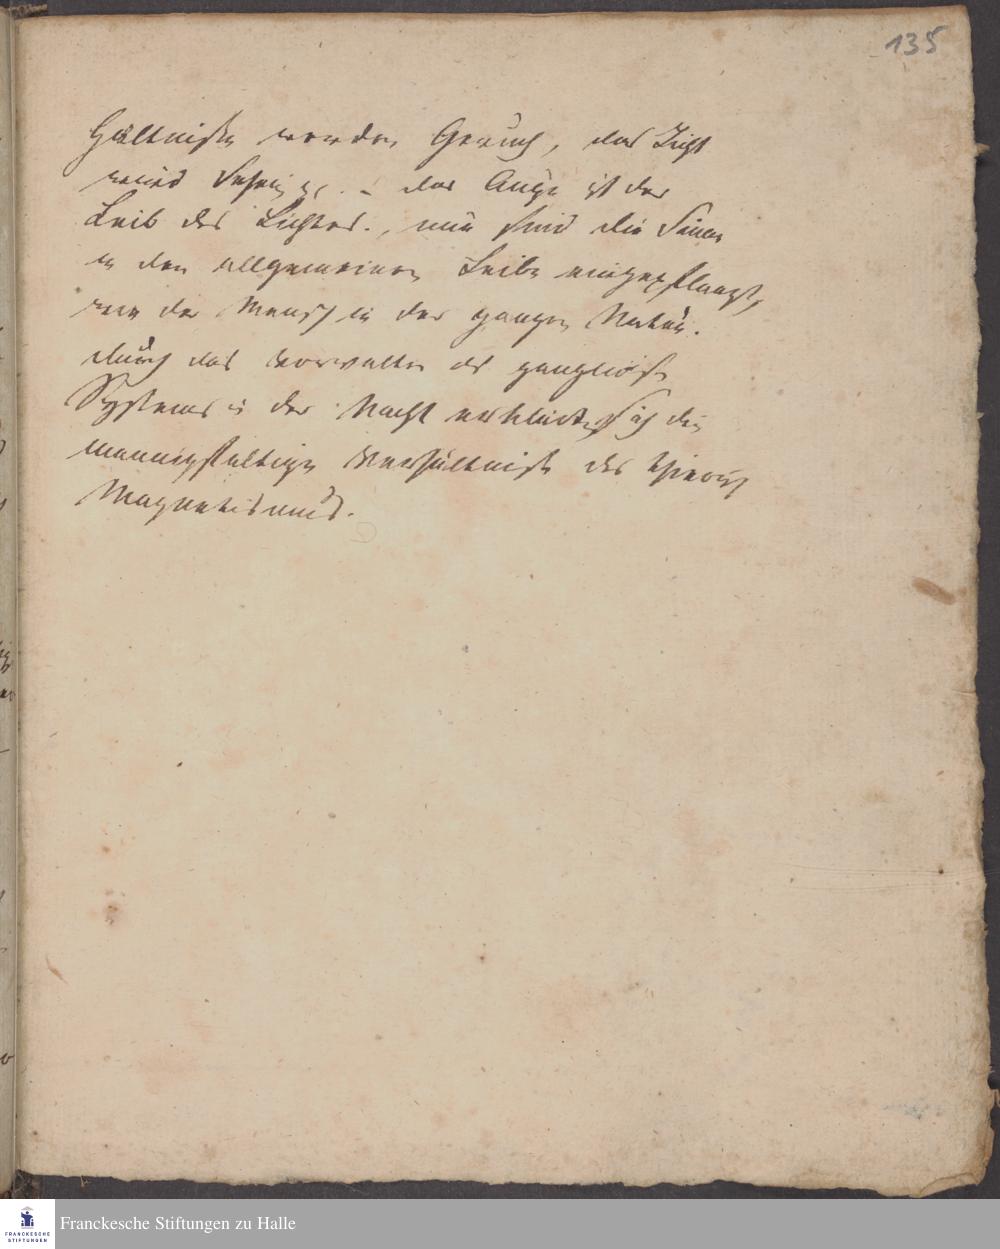 135
hältnisse werden Geruch, das Licht
wird Sehen pp. – das Auge ist der
Leib des Lichtes., nun sind die Sinne
in den allgemeinen Leibe eingepflanzt,
wie der Mensch in der ganzen Natur.
durch das Vorwalten des gangliösen
Systems in der Nacht erklärt sich die
mannigfaltigen Verhältniße des thierisch
Magnetismus.
FRANCKESCHE
STIFTUNGEN
Franckesche Stiftungen zu Halle